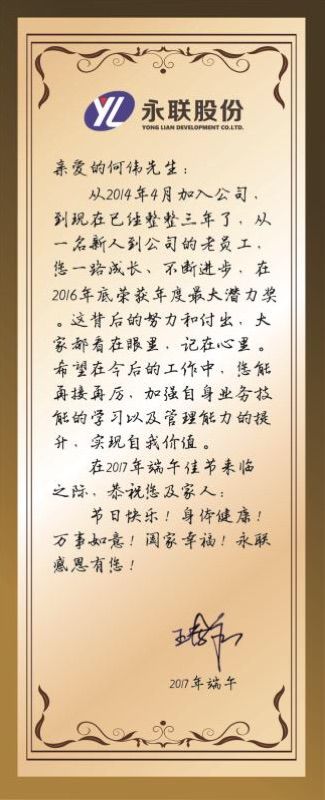 YL 永联股份
YONG LIAN DEVELOPMENT CO.LTD.
亲爱的何伟先生：
从2014年4月加入公司，
到现在已经整整三年了，从
一名新人到公司的老员工，
您一路成长、不断进步，在
2016年底荣获年度最大潜力奖
。这背后的努力和付出，大
家都看在眼里，记在心里。
希望在今后的工作中，您能
再接再厉，加强自身业务技
能的学习以及管理能力的提
升，实现自我价值。
在2017年端午佳节来临
之际，恭祝您及家人：
节日快乐！身体健康！
万事如意！阖家幸福！永联
感恩有您！
2017年端午